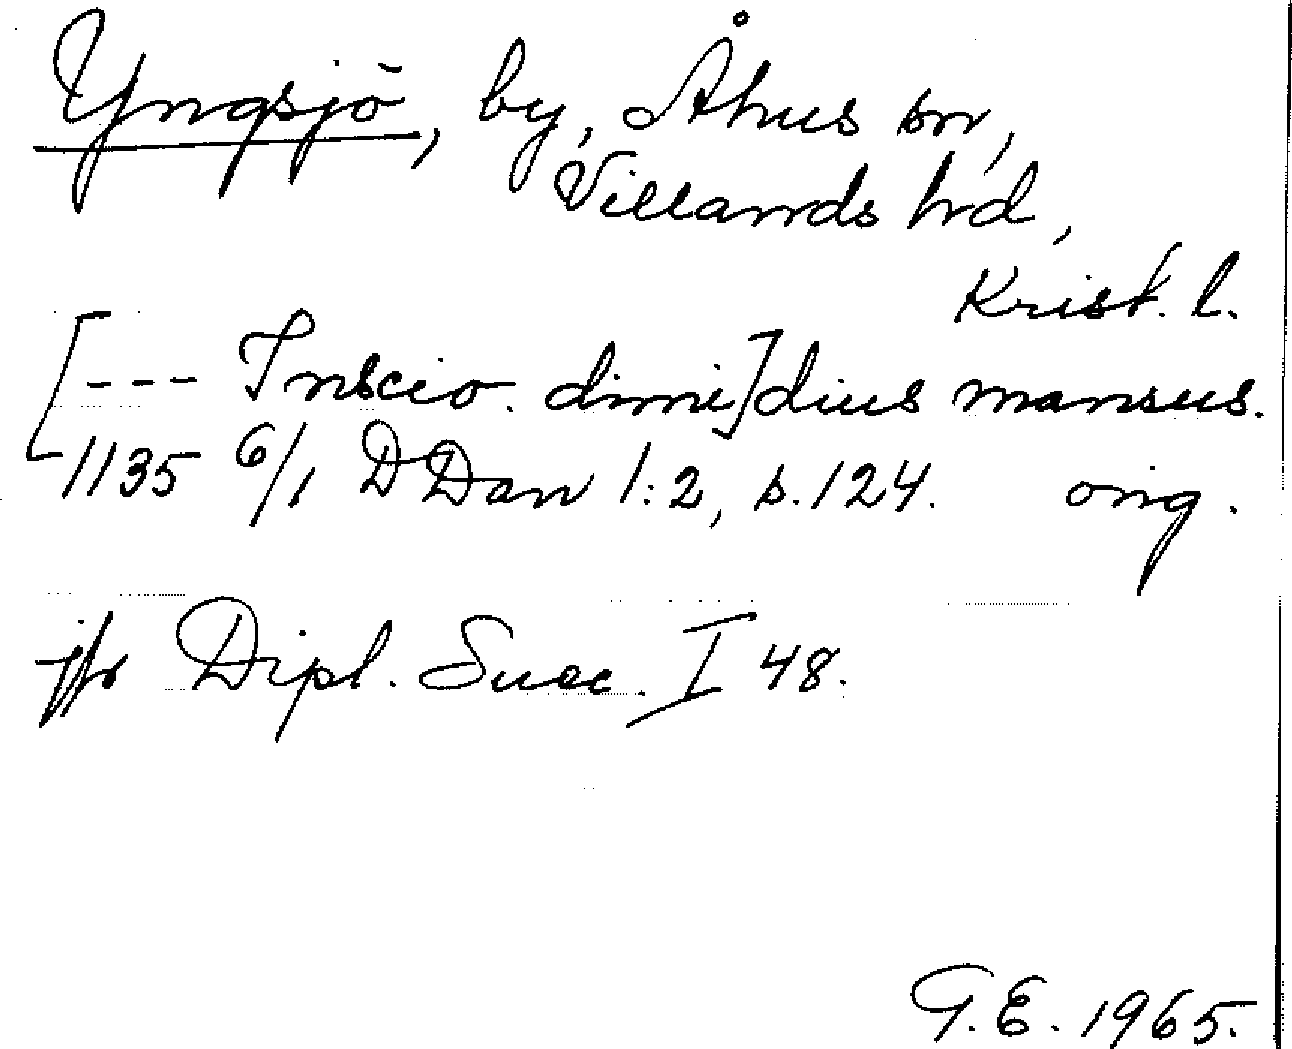 Yngsjö, by, Åhus sn,
Villands hd,
Krist. l.
[--- Inscio. dimi]dius mansus.
1135 6/1 DDan 1:2, s. 124. orig.
jfr Dipl. Suec. I 48.
G.E. 1965.